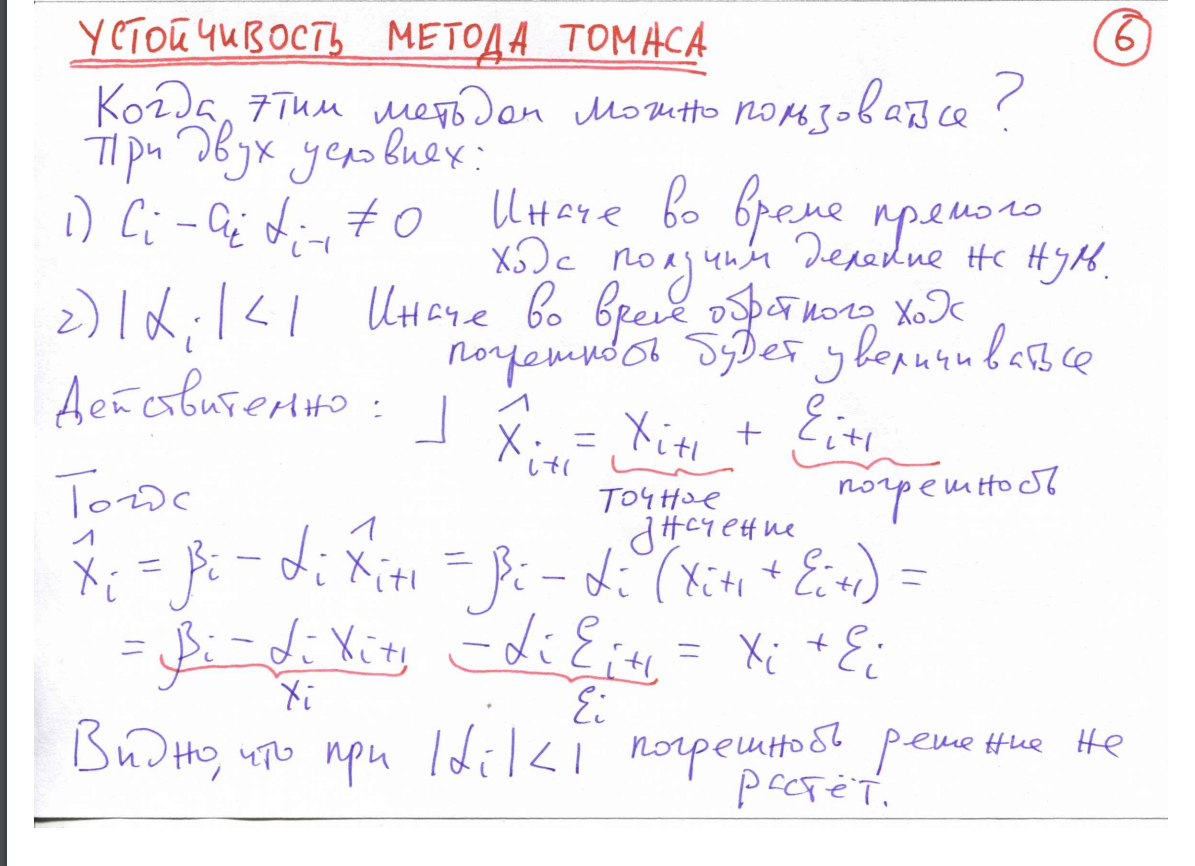 УСТОЙЧИВОСТЬ МЕТОДА ТОМАСА 6
Когда этим методом можно пользоваться?
При двух условиях:
1) Cᵢ - aᵢ αᵢ₋₁ ≠ 0 Иначе во время прямого
хода получим деление на нуль.
2) |αᵢ| < 1 Иначе во время обратного хода
погрешность будет увеличиваться
Действительно: ⅃ x̂ᵢ₊₁ = xᵢ₊₁ + εᵢ₊₁
Тогда точное погрешность
значение
x̂ᵢ = βᵢ - αᵢ x̂ᵢ₊₁ = βᵢ - αᵢ (xᵢ₊₁ + εᵢ₊₁) =
= βᵢ - αᵢ xᵢ₊₁ - αᵢ εᵢ₊₁ = xᵢ + εᵢ
xᵢ εᵢ
Видно, что при |αᵢ| < 1 погрешность решение не
растёт.